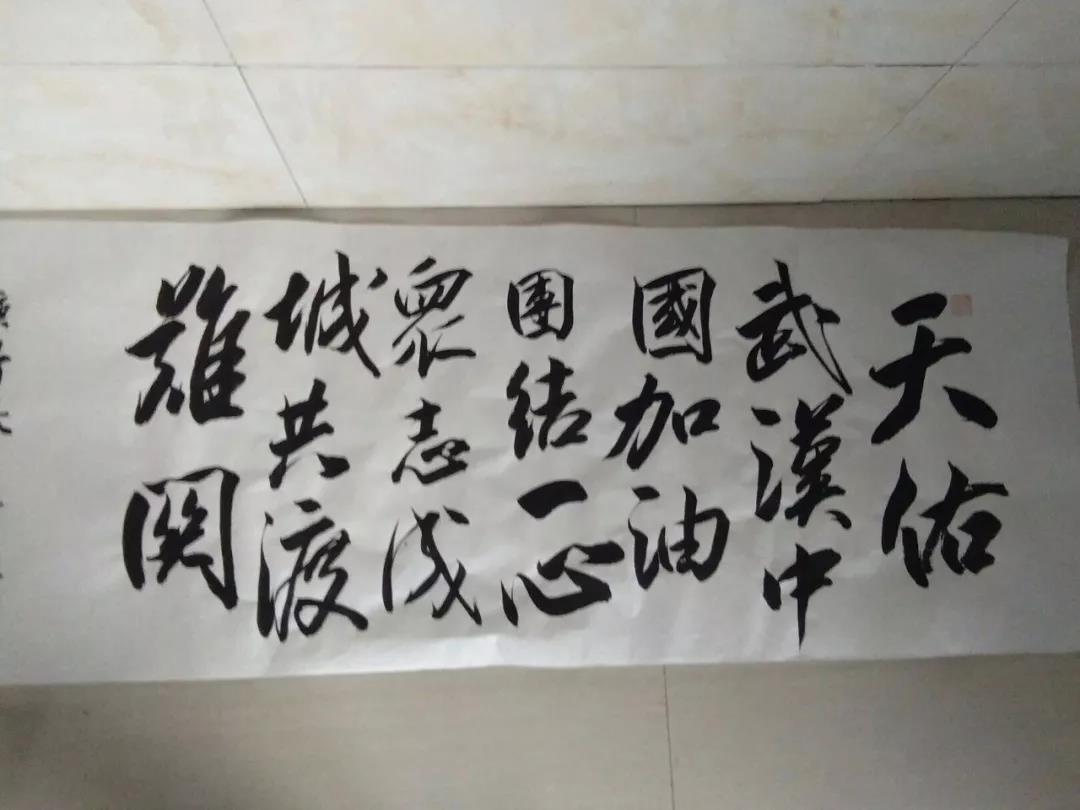 天佑
武漢中
國加油
團結一心
衆志成
城共渡
難関